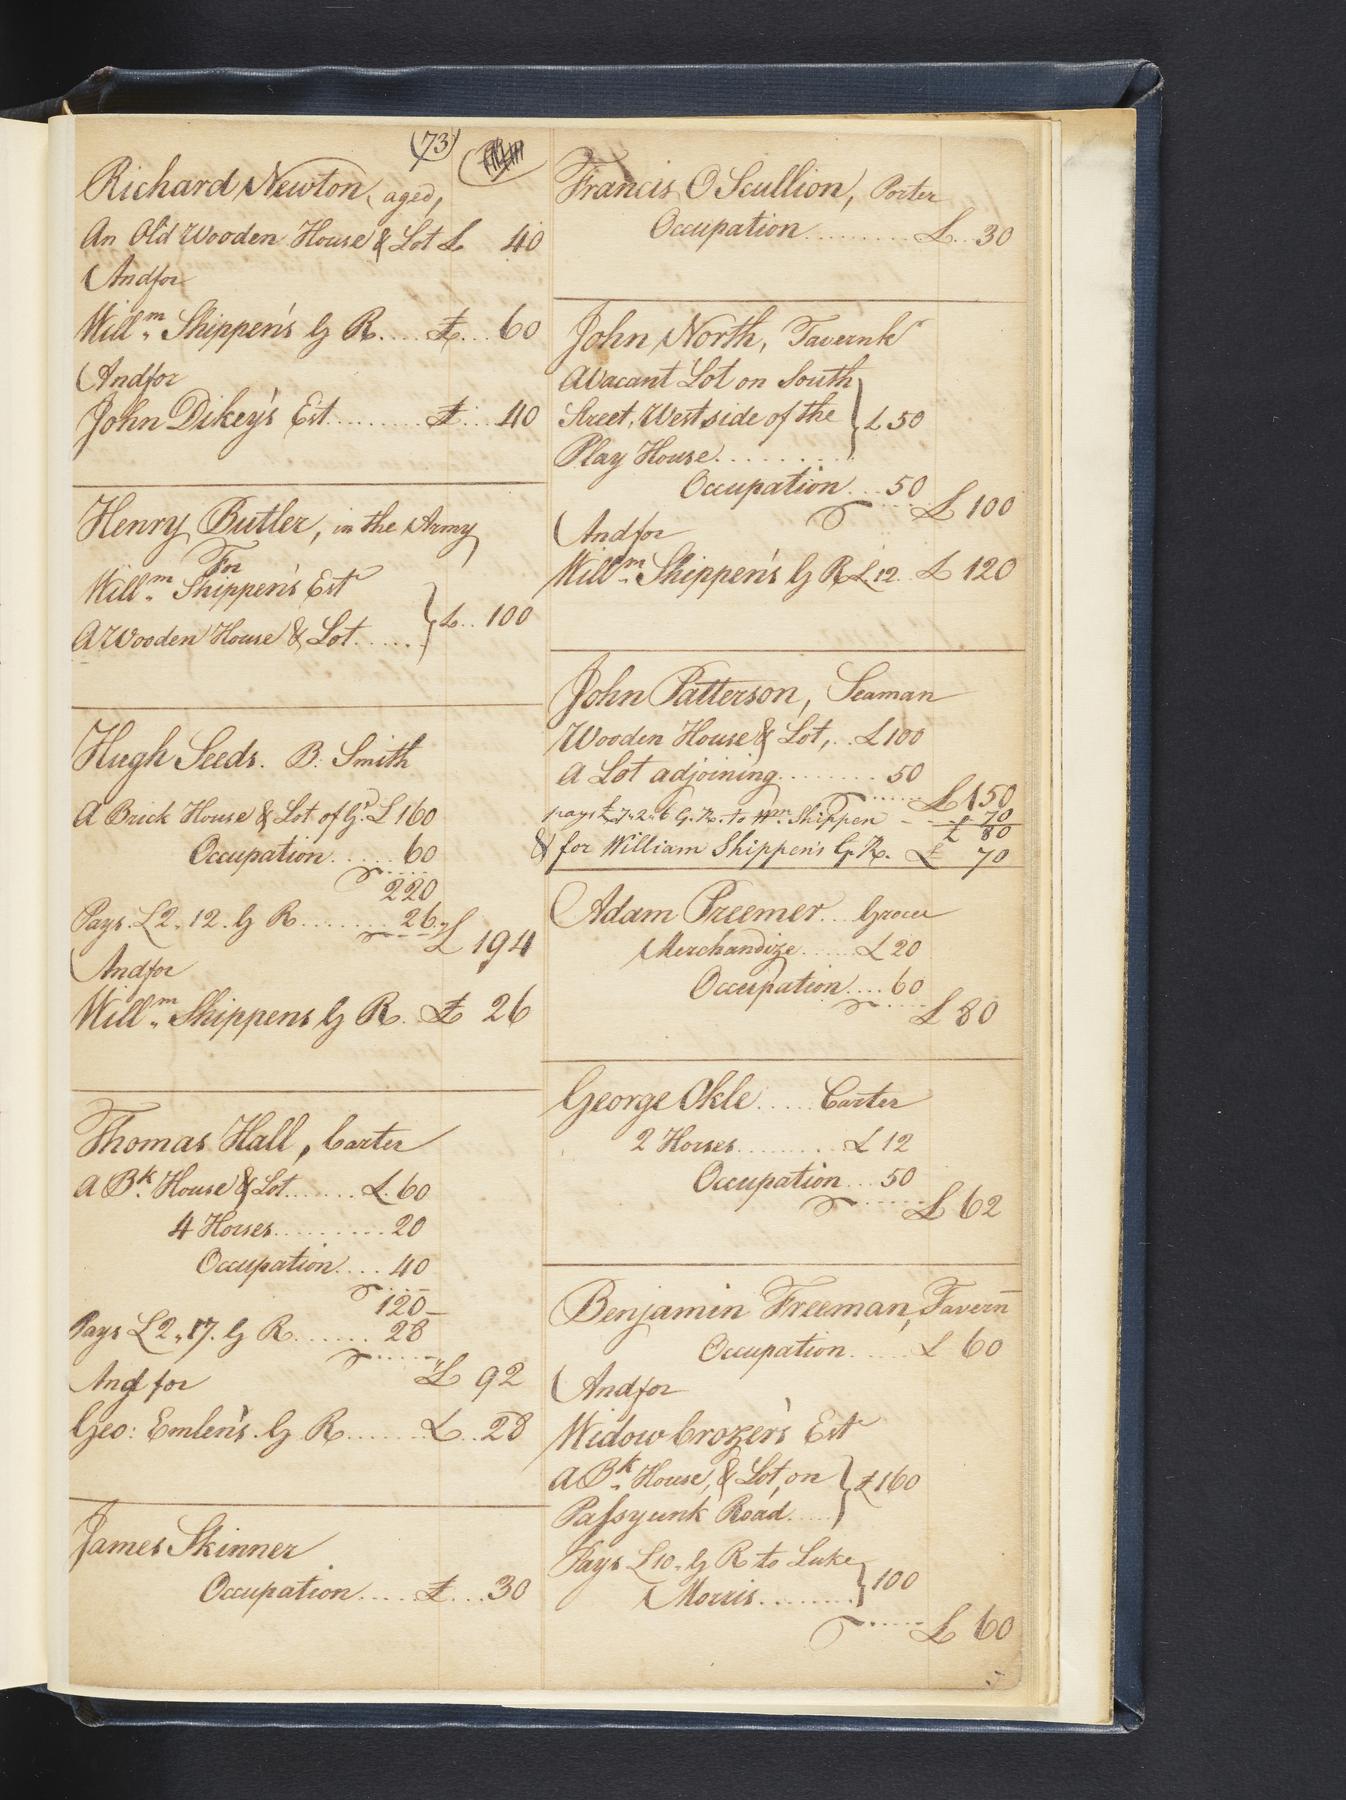 (73)
Richard Newton, aged,
An Old Wooden House & Lot £ 40
And for
Willm. Shippen's G R.... £... 60
And for
John Dikey's Est......... £... 40
Henry Butler, in the Army
For
Willm. Shippen's Est
A Wooden House & Lot..... } £.. 100
Hugh Seeds. B: Smith
A Brick House & Lot of Gd. £ 160
Occupation...... 60
220
Pays. £2,,12. G R....... 26,,
£ 194
And for
Willm. Shippens G R.. £ 26
Thomas Hall, Carter
A Bk. House & Lot....... £. 60
4 Horses.......... 20
Occupation.... 40
120
Pays £2,,17. G R....... 28
And for £ 92
Geo: Emlen's. G R....... £.. 28
James Skinner
Occupation.... £... 30
Francis O Scullion, Porter
Occupation......... £.. 30
John North, Tavernkr
A Vacant Lot on South
Street, West side of the } £ 50
Play House..........
Occupation... 50
£ 100
And for
Willm. Shippen's G R £12.. £ 120
John Patterson, Seaman
Wooden House & Lot,.. £ 100
A Lot adjoining......... 50
£ 150
pays £7,,2,,6 G. R. to Wm. Shippen - - 70
£ 80
& for William Shippen's G. R. £ 70
Adam Preemer.. Grocer
Merchandize..... £ 20
Occupation.... 60
£ 80
George Okle..... Carter
2 Horses......... £ 12
Occupation... 50
£ 62
Benjamin Freeman, Tavern
Occupation...... £ 60
And for
Widow Crozer's Est
A Bk. House, & Lot, on } £ 160
Passyunk Road.....
Pays £10,, G R to Luke
Morris......... } 100
£ 60